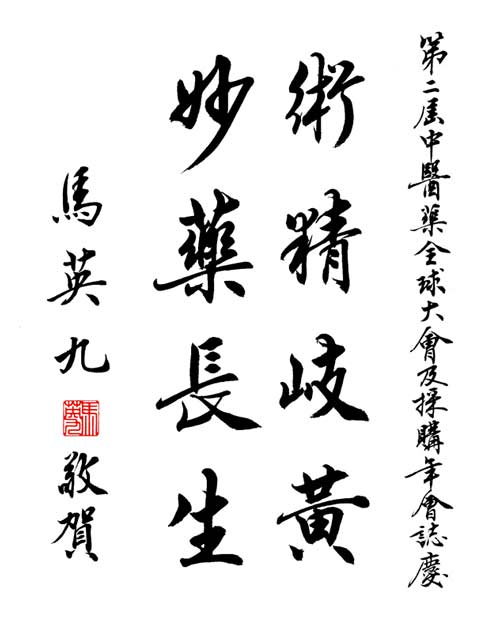 第二屆中醫藥全球大會及採購年會誌慶
術精岐黃
妙藥長生
馬英九
馬英九
敬賀